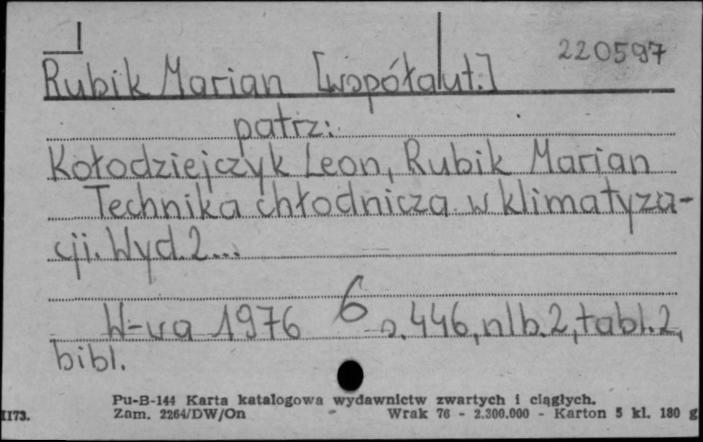 220597
Rubik Marian [współaut.]
patrz:
Kołodziejczyk Leon, Rubik Marian
Technika chłodnicza w klimatyza-
cji. Wyd. 2...
6
W-wa 1976 s. 446, nlb. 2, tabl. 2,
bibl.
Pu-B-144 Karta katalogowa wydawnictw zwartych i ciągłych.
1173. Zam. 2264/DW/On Wrak 76 - 2.300.000 - Karton 5 kl. 180 g